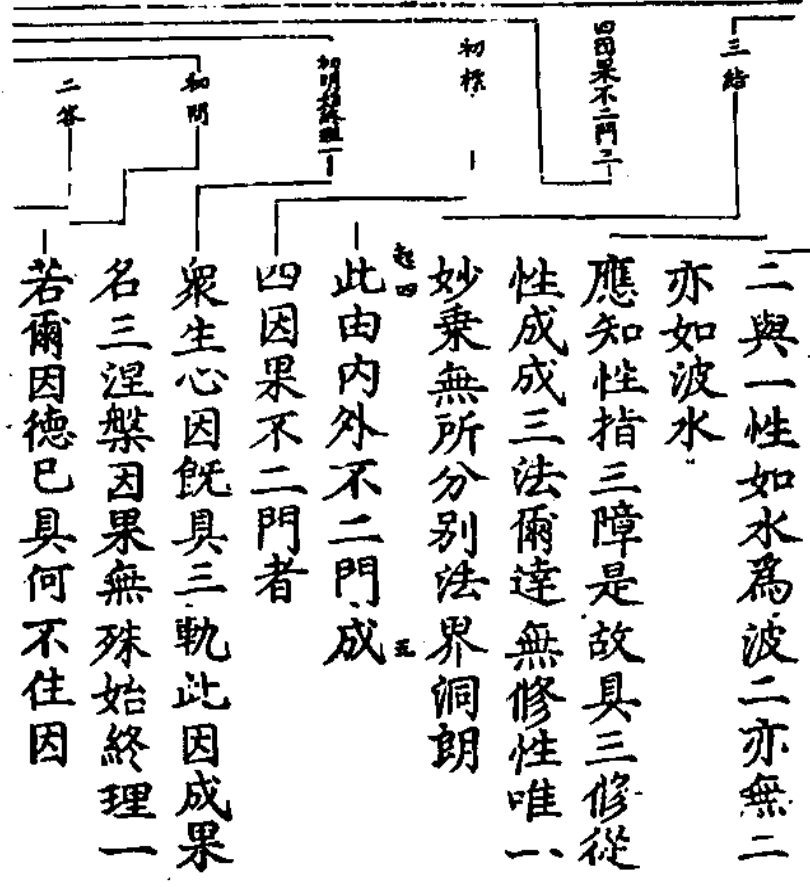 三結
四因果不二門二
初標
初明始終理一
初問
二答
二與一性如水爲波二亦無二
亦如波水
應知性指三障是故具三修從
性成成三法爾達無修性唯一
妙乗無所分別法界洞朗
起四
此由内外不二門成
五
四因果不二門者
衆生心因既具三軌此因成果
名三涅槃因果無殊始終理一
若爾因德已具何不住因